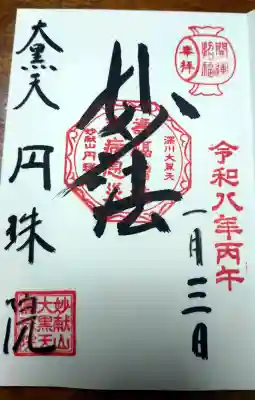 開運
招福
奉拝
令和八年丙午
一月三日
妙法
深川大黒天
妙献山円珠院
大黒天
円珠院
妙献山
大黒天